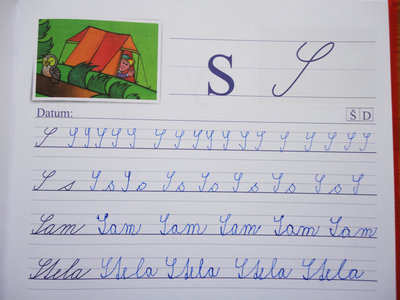 S S
Datum: Š D
S S S S S S S S S S S S S S S S S S
S s Ss Ss Ss Ss Ss Ss Ss S
Sam Sam Sam Sam Sam Sam
Stela Stela Stela Stela Stela